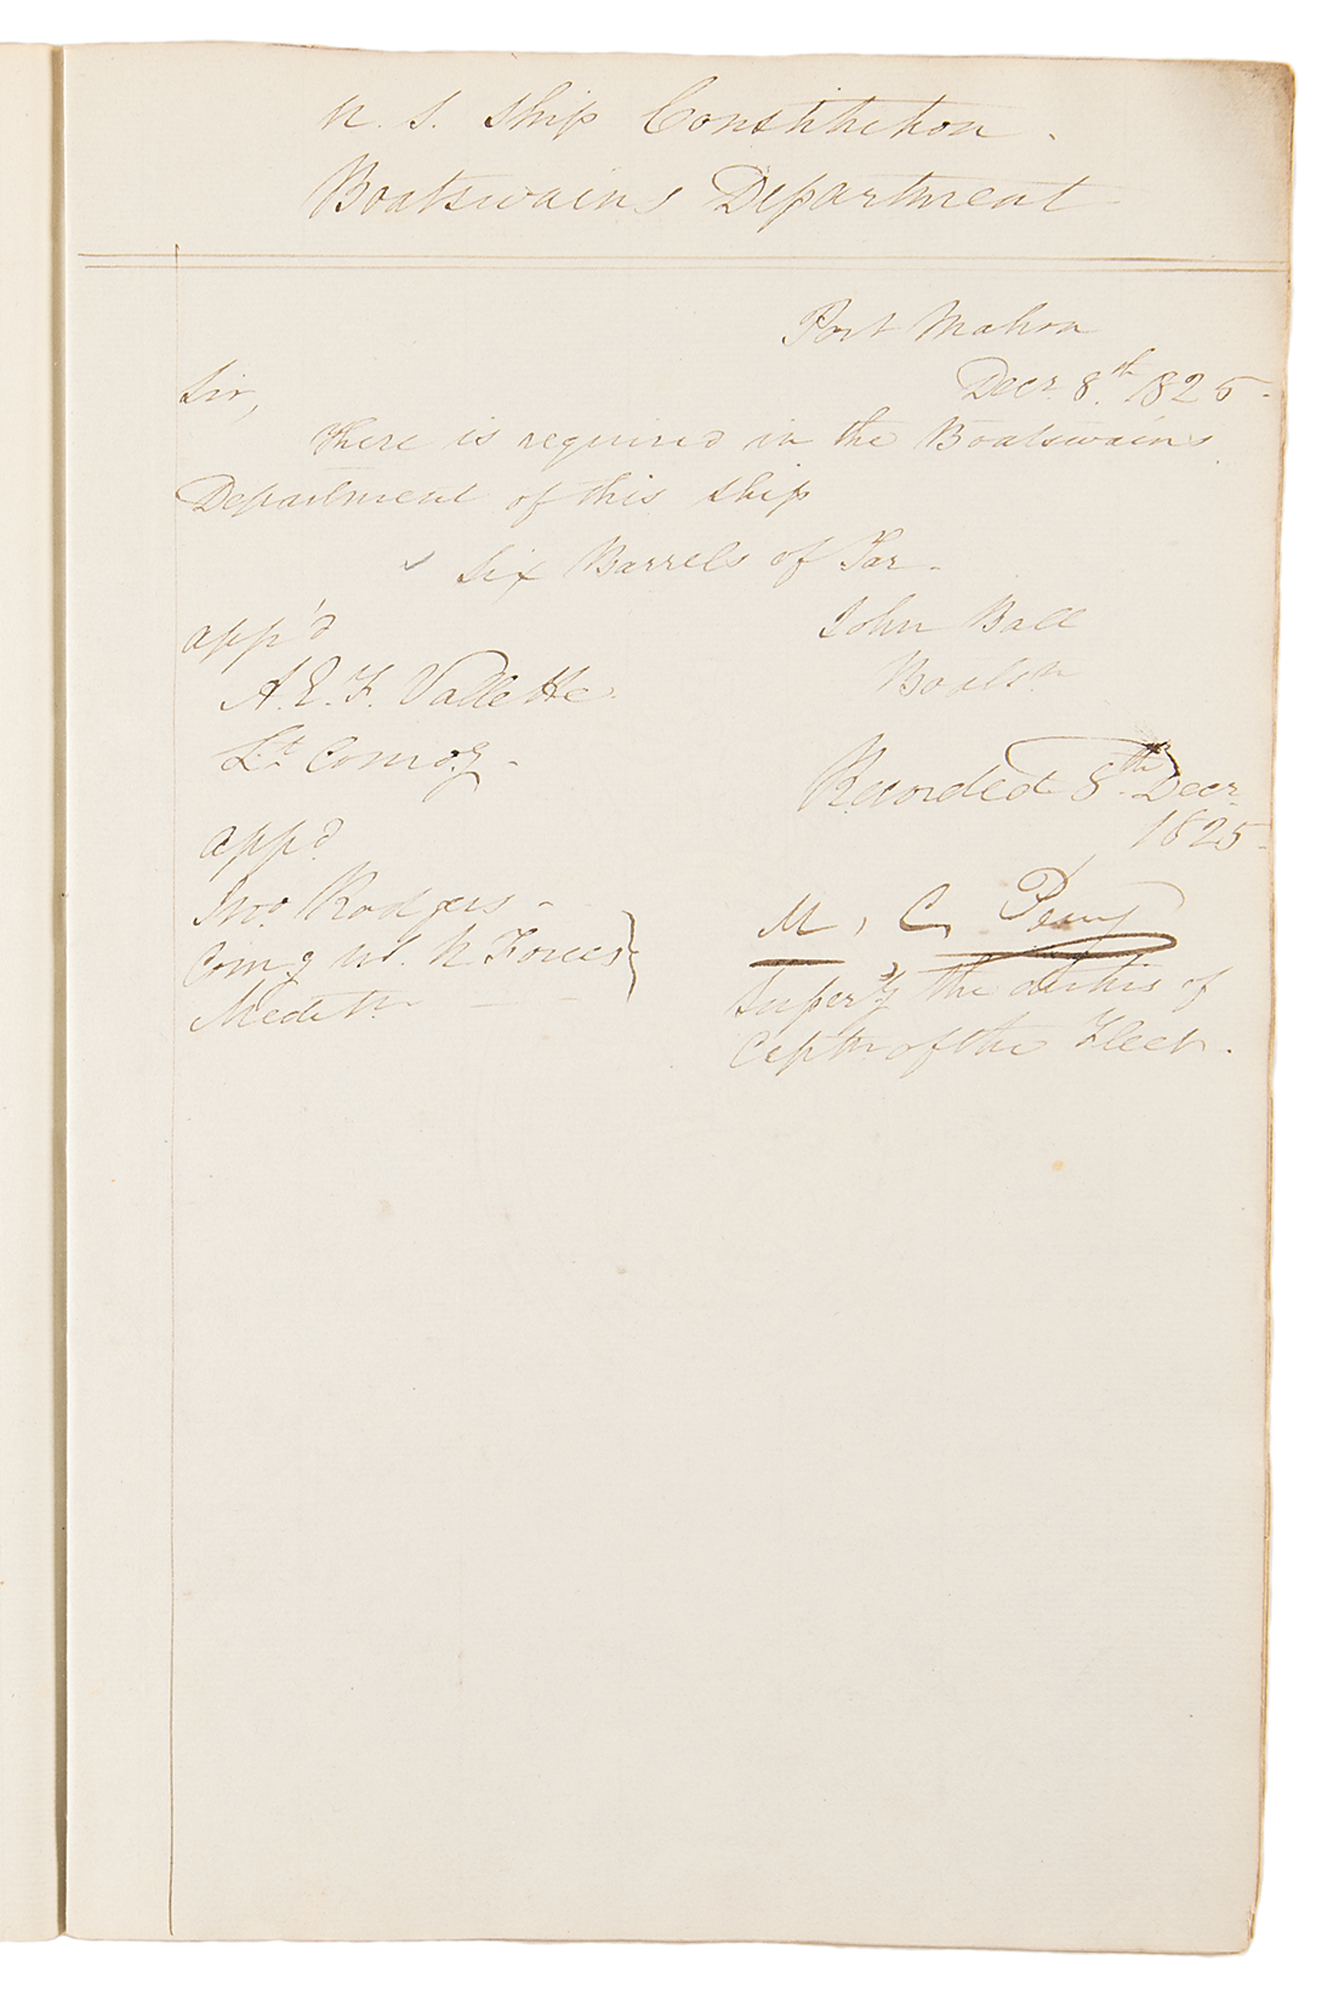 U. S. Ship Constitution.
Boatswains Department
Port Mahon
Decr. 8th. 1825-
Sir,
There is required in the Boatswains
Department of this Ship
Six Barrels of Tar-
app'd
John Ball
Boatsn
A. E. F. Vallette
Lt. Comdg-
Recorded 8th. Decr
1825-
app'd
Jno. Rodgers-
Comg US. N Forces
Medit
M, C, Perry
the duties of
Captn of the Fleet.